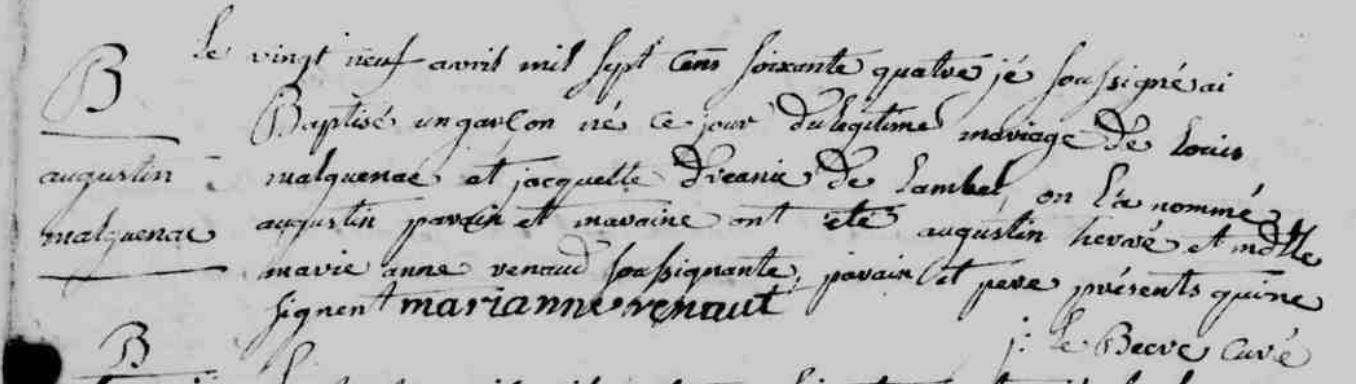 B
augustin
malquenae
Le vingt neuf avril mil sept Cens soixante quatre jé soussigné ai
Baptisé un garcon né ce jour du légitime mariage de Louis
malquenae et jacquette dreanic de Lambel, on l'a nommé
augustin parain et maraine ont été augustin hervé et mdlle
marie anne renaud soussignante, parain et pere présents qui ne
signent marianne renaut
j: le Becve Curé
B